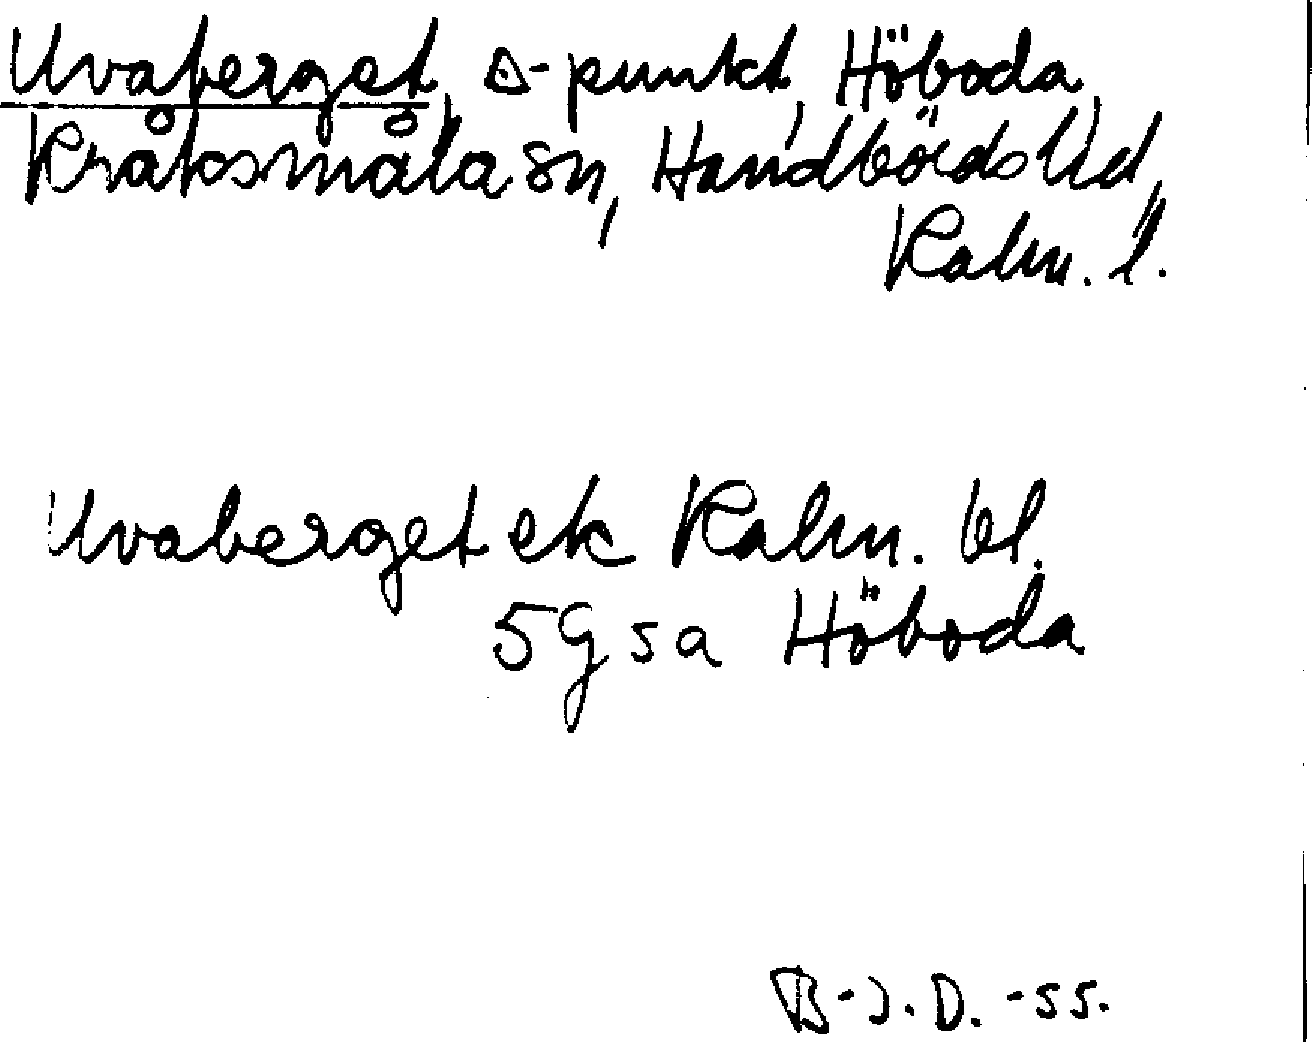 Uvaberget, △-punkt, Höboda,
Kråksmåla sn, Handbörds hd,
Kalm. l.
Uvaberget ek Kalm. bl.
5G5a Höboda
B-J.D. -55.